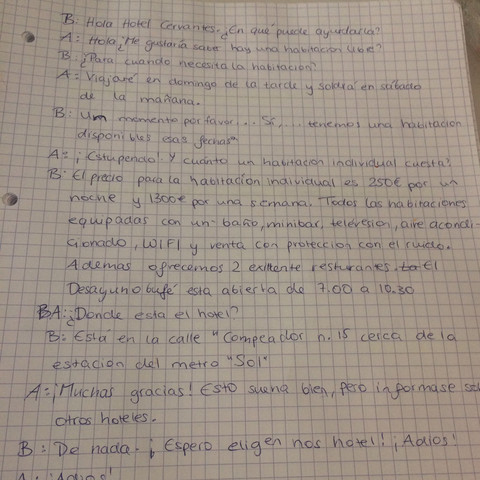 B: Hola Hotel Cervantes. ¿En qué puede ayudarla?
A: Hola ¿Me gustaría saber hay una habitación libre?
B: ¿Para cuándo necesita la habitación?
A: Viajaré en domingo de la tarde y soldrá en sábado
de la mañana.
B: Um momento por favor... Sí, ... tenemos una habitación
disponibles esas fechas"
A: ¡Estupendo! Y cuánto un habitacion individual cuesta?
B: El precio para la habitación individual es 250€ por un
noche y 1300€ por una semana. Todos las habitaciones
equipadas con un baño, minibar, televesion, aire acondi-
cionado, WIFI y venta con proteccion con el ruido.
Ademas ofrecemos 2 exiltente resturantes. El
Desayuno bufé esta abierta de 7.00 a 10.30
BA: ¿Donde esta el hotel?
B: Está en la calle "Compeador n. 15 cerca de la
estación del metro "Sol"
A: ¡Muchas gracias! Esto suena bien, pero informase
otros hoteles.
B: De nada. ¡Espero eligen nos hotel! ¡Adios!
A: ¡Adios!